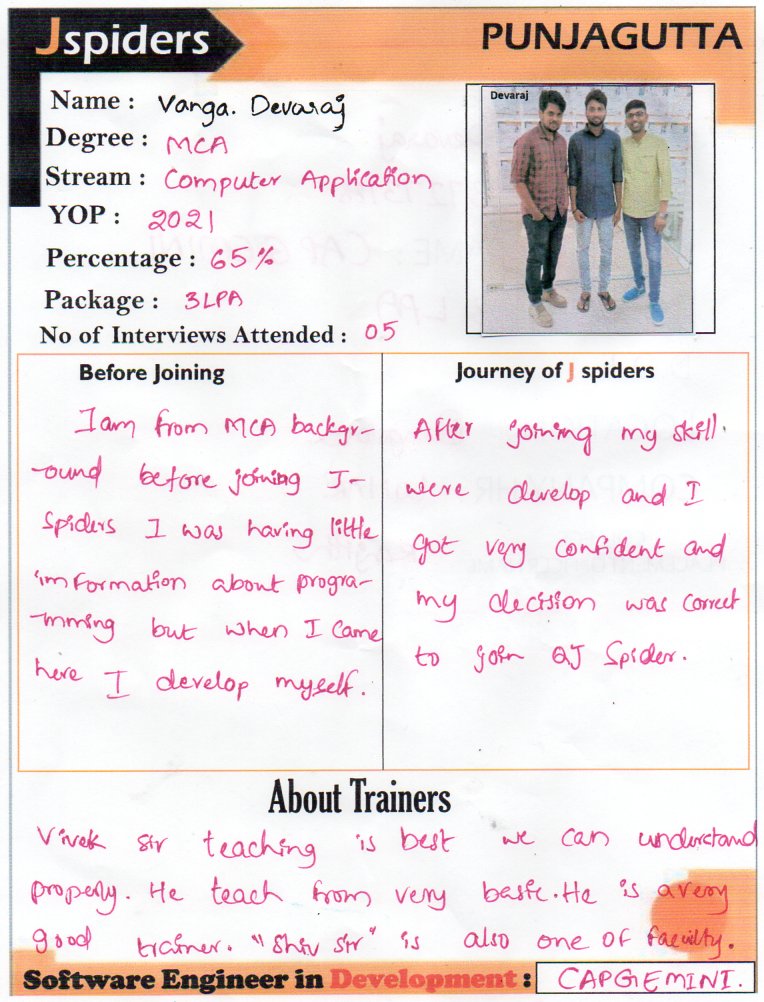 Jspiders
PUNJAGUTTA
Name : Vanga. Devaraj
Degree : MCA
Stream : Computer Application
YOP : 2021
Percentage : 65%
Package : 3LPA
No of Interviews Attended : 05
Devaraj
Before Joining
I am from MCA backgr-
-ound before joining J-
spiders I was having little
information about progra-
-mming but when I came
here I develop myself.
Journey of J spiders
After joining my skill
were develop and I
got very confident and
my decision was correct
to join QJ Spider.
About Trainers
Vivek sir teaching is best we can understand
properly. He teach from very basic. He is a very
good trainer. "Shiv sir" is also one of faculty.
Software Engineer in Development : CAPGEMINI.